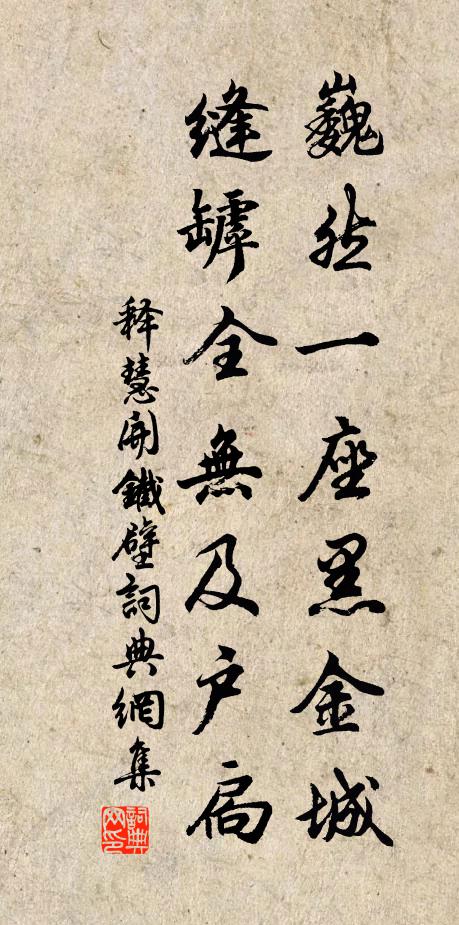 巍然一座黑金城
縫罅全無及户扃
释慧開鐵壁詞典網集
詞典网印